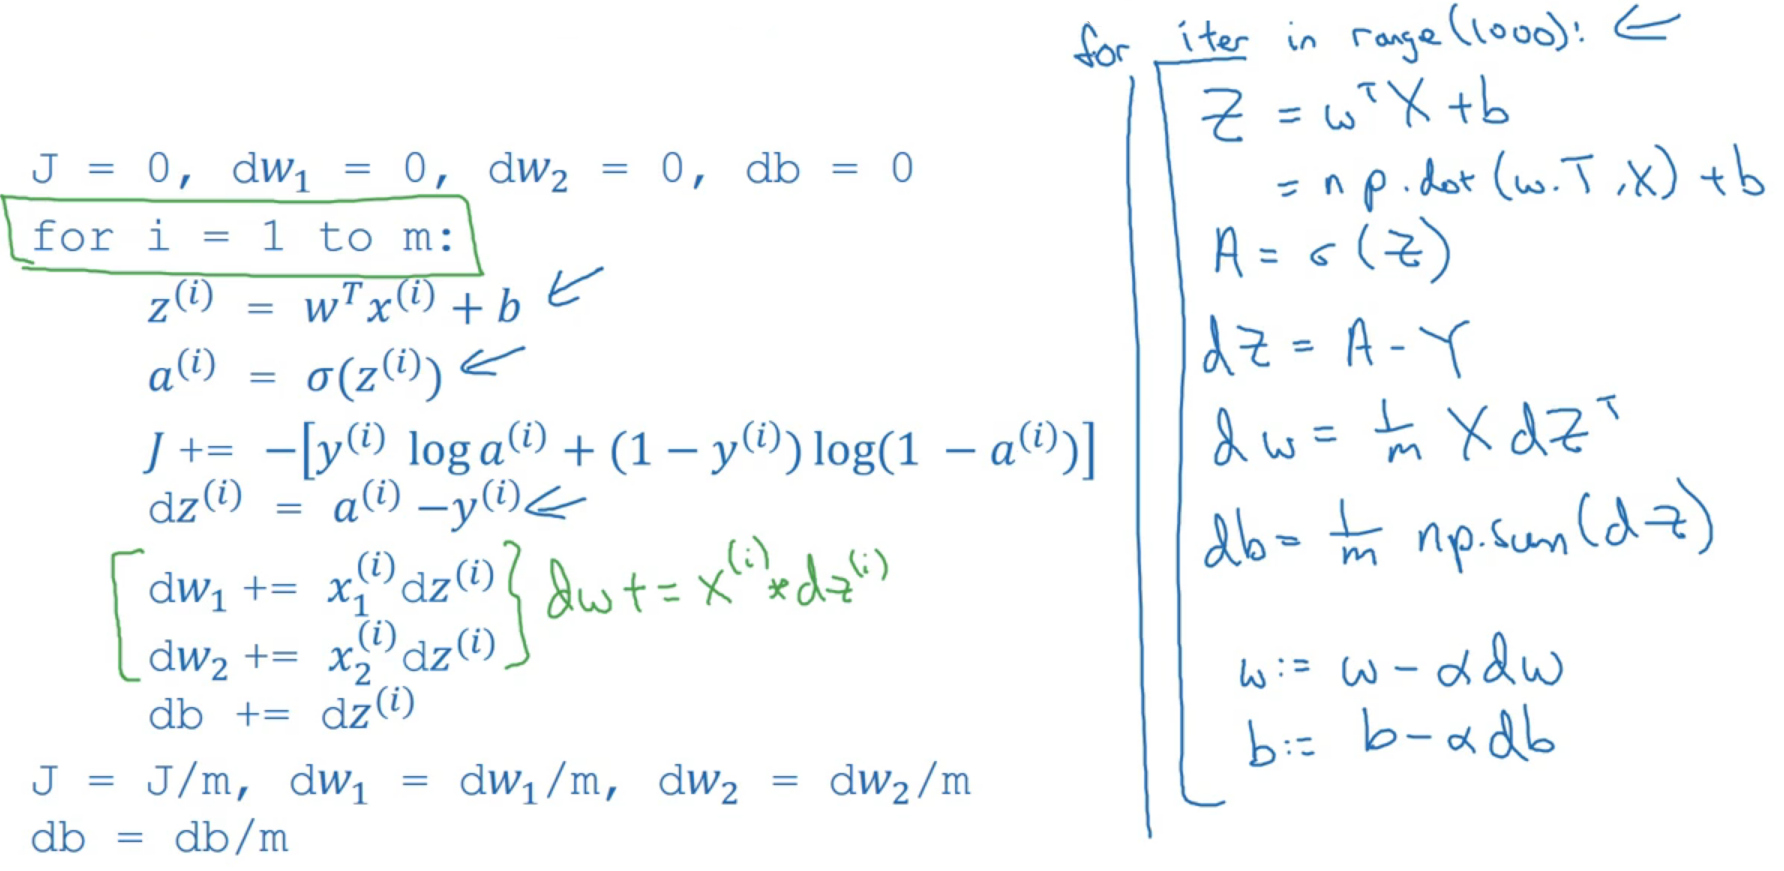 J = 0, dw₁ = 0, dw₂ = 0, db = 0
for i = 1 to m:
z⁽ⁱ⁾ = wᵀx⁽ⁱ⁾ + b
a⁽ⁱ⁾ = σ(z⁽ⁱ⁾)
J += −[y⁽ⁱ⁾ log a⁽ⁱ⁾ + (1 − y⁽ⁱ⁾) log(1 − a⁽ⁱ⁾)]
dz⁽ⁱ⁾ = a⁽ⁱ⁾ − y⁽ⁱ⁾
dw₁ += x₁⁽ⁱ⁾dz⁽ⁱ⁾
dw₂ += x₂⁽ⁱ⁾dz⁽ⁱ⁾
dw += x⁽ⁱ⁾ * dz⁽ⁱ⁾
db += dz⁽ⁱ⁾
J = J/m, dw₁ = dw₁/m, dw₂ = dw₂/m
db = db/m
for iter in range(1000):
Z = wᵀX + b
= np.dot(w.T, X) + b
A = σ(Z)
dZ = A - Y
dw = 1/m X dZᵀ
db = 1/m np.sum(dZ)
w := w - αdw
b := b - αdb